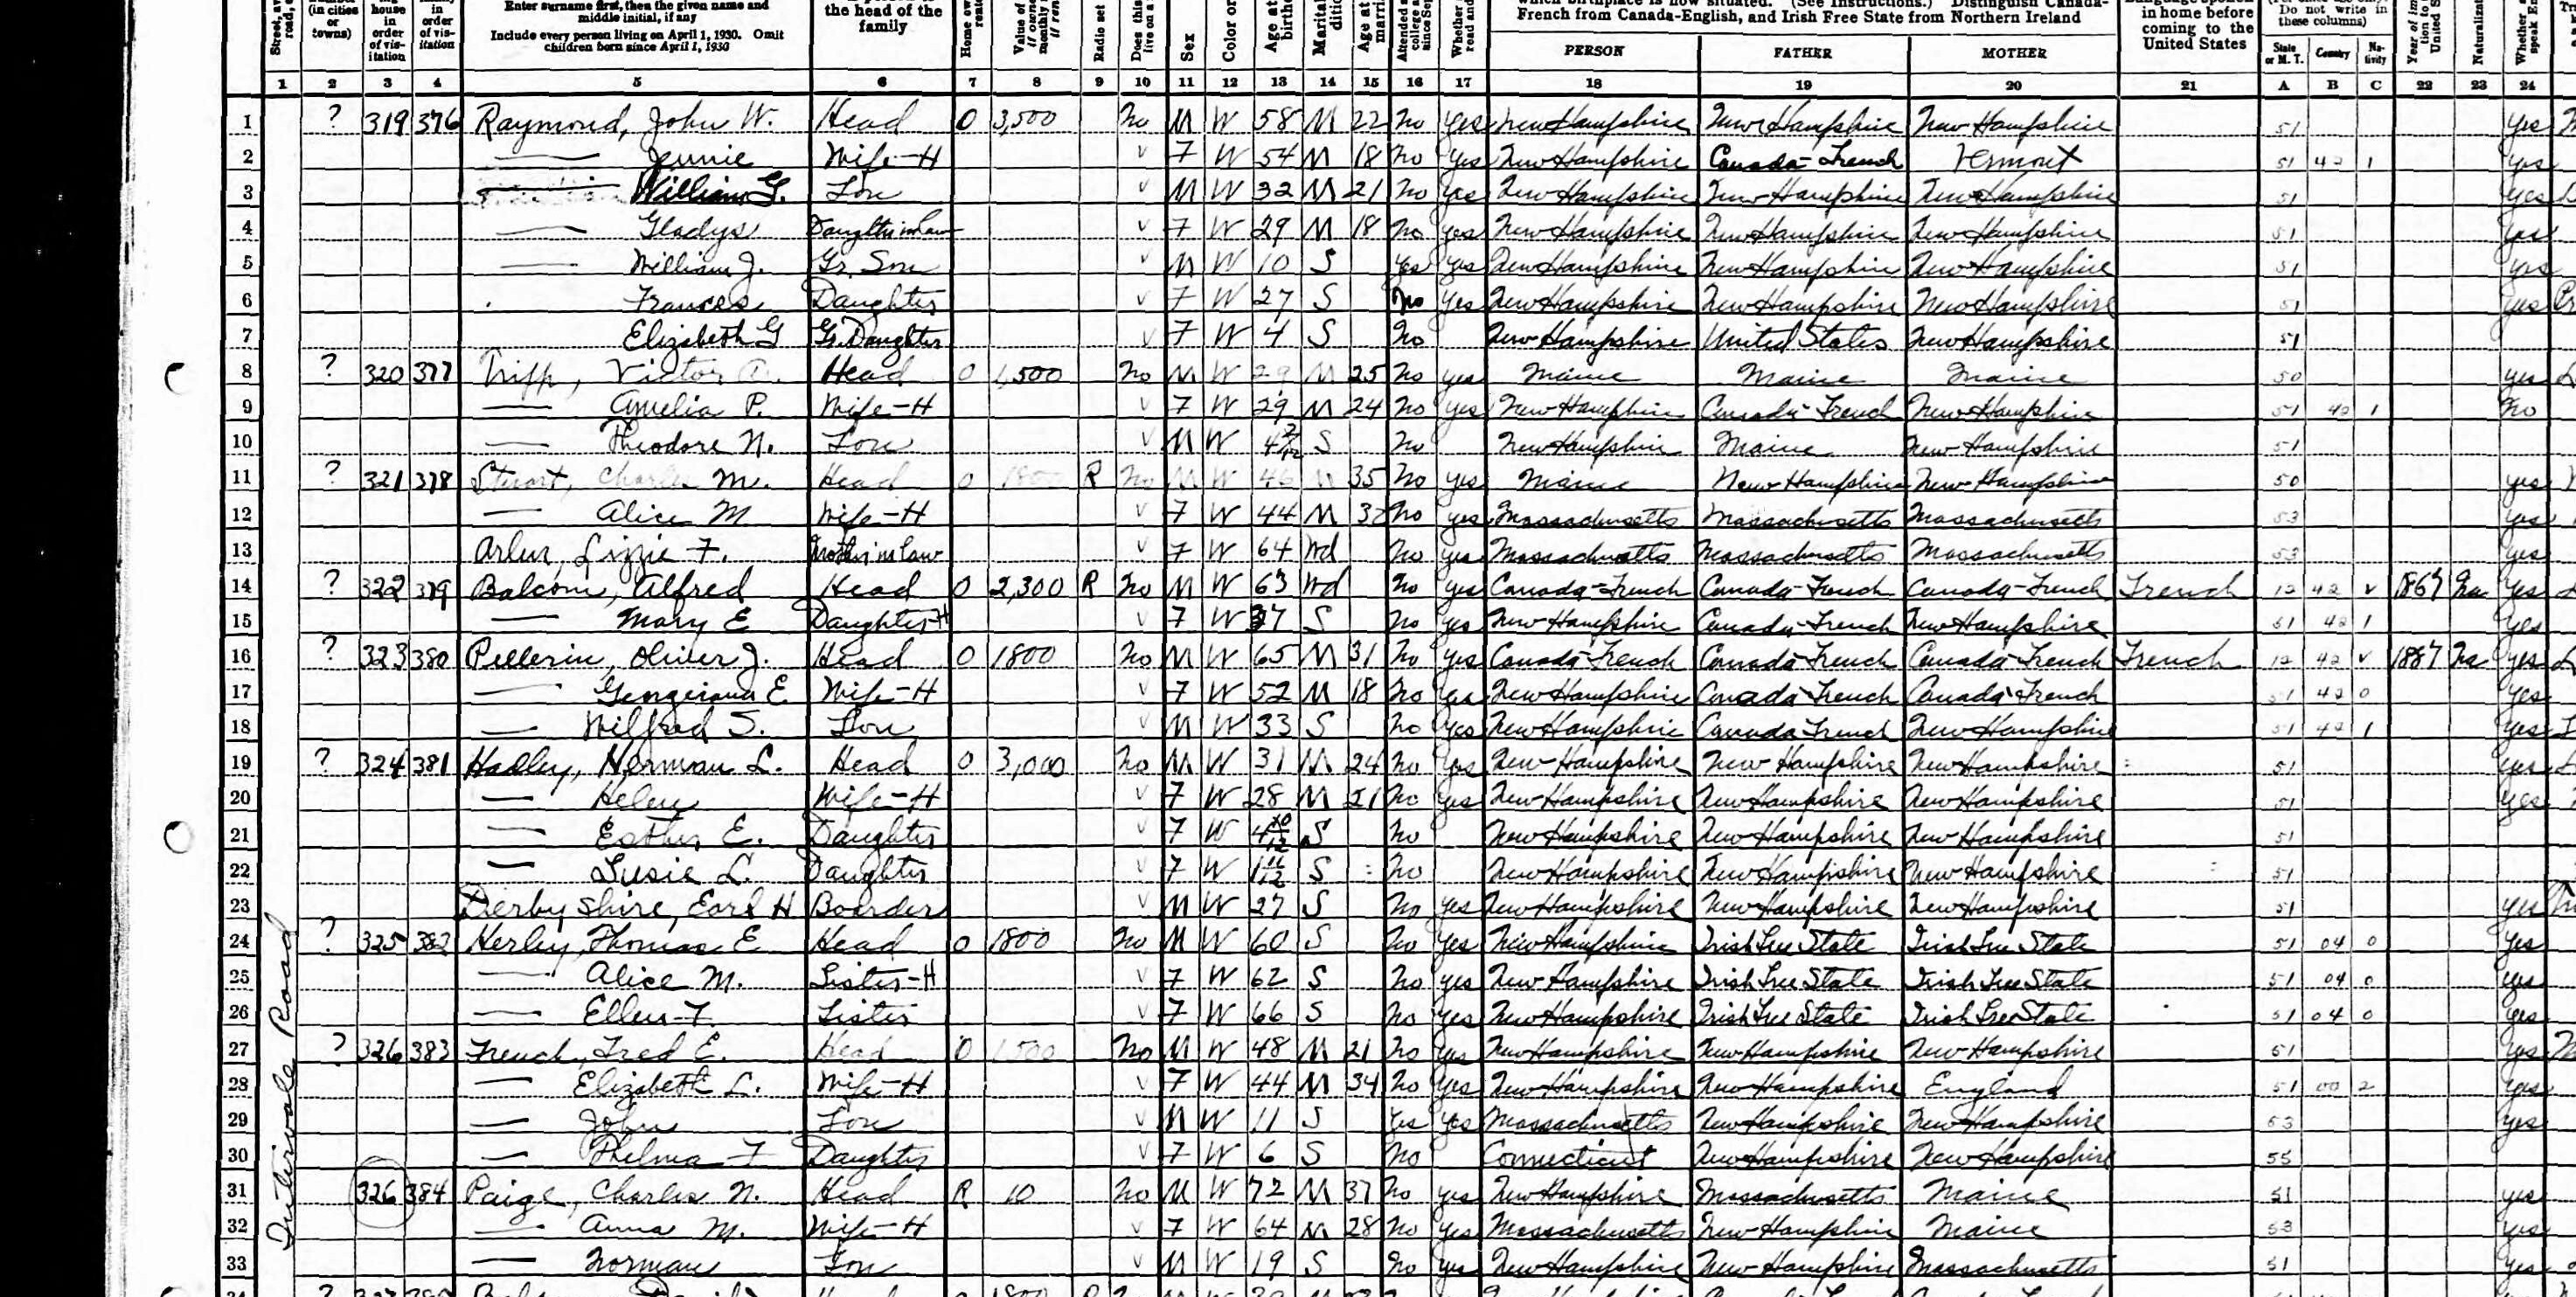 Enter surname first, then the given name and the head of the which birthplace is now situated. (See Instructions.) Distinguish Canada-
middle initial, if any family French from Canada-English, and Irish Free State from Northern Ireland
Include every person living on April 1, 1930. Omit children born since April 1, 1930
in home before coming to the United States
PERSON FATHER MOTHER
1 2 3 4 5 6 7 8 9 10 11 12 13 14 15 16 17 18 19 20 21 A B C 22 23 24
1 ? 319 376 Raymond, John W. Head O 3,500 No M W 58 M 22 No Yes New Hampshire New Hampshire New Hampshire 51 Yes
2 — Jennie Wife-H V F W 54 M 18 No Yes New Hampshire Canada-French Vermont 51 42 1 Yes
3 — William G. Son V M W 32 M 21 No Yes New Hampshire New Hampshire New Hampshire 51 Yes
4 — Gladys Daughter in law V F W 29 M 18 No Yes New Hampshire New Hampshire New Hampshire 51 Yes
5 — William J. Gr. Son V M W 10 S Yes Yes New Hampshire New Hampshire New Hampshire 51 Yes
6 Frances Daughter V F W 27 S No Yes New Hampshire New Hampshire New Hampshire 51 Yes
7 Elizabeth G Gr. Daughter V F W 4 S No New Hampshire United States New Hampshire 51
8 ? 320 377 Tripp, Victor Head O 1,500 No M W 29 M 25 No Yes Maine Maine Maine 50 Yes
9 — Amelia P. Wife-H V F W 29 M 24 No Yes New Hampshire Canada-French New Hampshire 51 42 1 No
10 — Theodore N. Son V M W 4 2/12 S No New Hampshire Maine New Hampshire 51
11 ? 321 378 Stuart, Charles M. Head O 1800 R No M W 46 M 35 No Yes Maine New Hampshire New Hampshire 50 Yes
12 — Alice M Wife-H V F W 44 M No Yes Massachusetts Massachusetts Massachusetts 53 Yes
13 Lizzie F. Mother in law V F W 64 Wd No Yes Massachusetts Massachusetts Massachusetts 53 Yes
14 ? 322 379 Balcom, Alfred Head O 2,300 R No M W 63 Wd No Yes Canada-French Canada-French Canada-French French 12 42 V 1867 Na Yes
15 — Mary E Daughter-H V F W 37 S No Yes New Hampshire Canada-French New Hampshire 51 42 1 Yes
16 ? 323 380 Pellerin, Oliver J. Head O 1800 No M W 65 M 31 No Yes Canada-French Canada-French Canada-French French 12 42 V 1887 Na Yes
17 — Georgiana E. Wife-H V F W 52 M 18 No Yes New Hampshire Canada-French Canada-French 51 42 0 Yes
18 — Wilfred S. Son V M W 33 S No Yes New Hampshire Canada French New Hampshire 51 42 1 Yes
19 ? 324 381 Hadley, Norman L. Head O 3,000 No M W 31 M 24 No Yes New Hampshire New Hampshire New Hampshire 51 Yes
20 — Helen Wife-H V F W 28 M 21 No Yes New Hampshire New Hampshire New Hampshire 51 Yes
21 — Esther E. Daughter V F W 4 10/12 S No New Hampshire New Hampshire New Hampshire 51
22 — Susie L. Daughter V F W 1 11/12 S No New Hampshire New Hampshire New Hampshire 51
23 Derbyshire, Earl H Boarder V M W 27 S No Yes New Hampshire New Hampshire New Hampshire 51 Yes
24 ? 325 382 Herley, Thomas E Head O 1800 No M W 60 S No Yes New Hampshire Irish Free State Irish Free State 51 04 0 Yes
25 — Alice M. Sister-H V F W 62 S No Yes New Hampshire Irish Free State Irish Free State 51 04 0 Yes
26 — Ellen F. Sister V F W 66 S No Yes New Hampshire Irish Free State Irish Free State 51 04 0 Yes
27 ? 326 383 French, Fred E. Head O 1,500 No M W 48 M 21 No Yes New Hampshire New Hampshire New Hampshire 51 Yes
28 — Elizabeth L. Wife-H V F W 44 M 34 No Yes New Hampshire New Hampshire England 51 00 2 Yes
29 — John Son V M W 11 S Yes Yes Massachusetts New Hampshire New Hampshire 53 Yes
30 — Thelma F Daughter V F W 6 S No Connecticut New Hampshire New Hampshire 55
31 326 384 Paige, Charles N. Head R 10 No M W 72 M 37 No Yes New Hampshire Massachusetts Maine 51 Yes
32 — Anna M. Wife-H V F W 64 M 28 No Yes Massachusetts New Hampshire Maine 53 Yes
33 — Norman Son V M W 19 S No Yes New Hampshire New Hampshire Massachusetts 51 Yes
Intervale Road